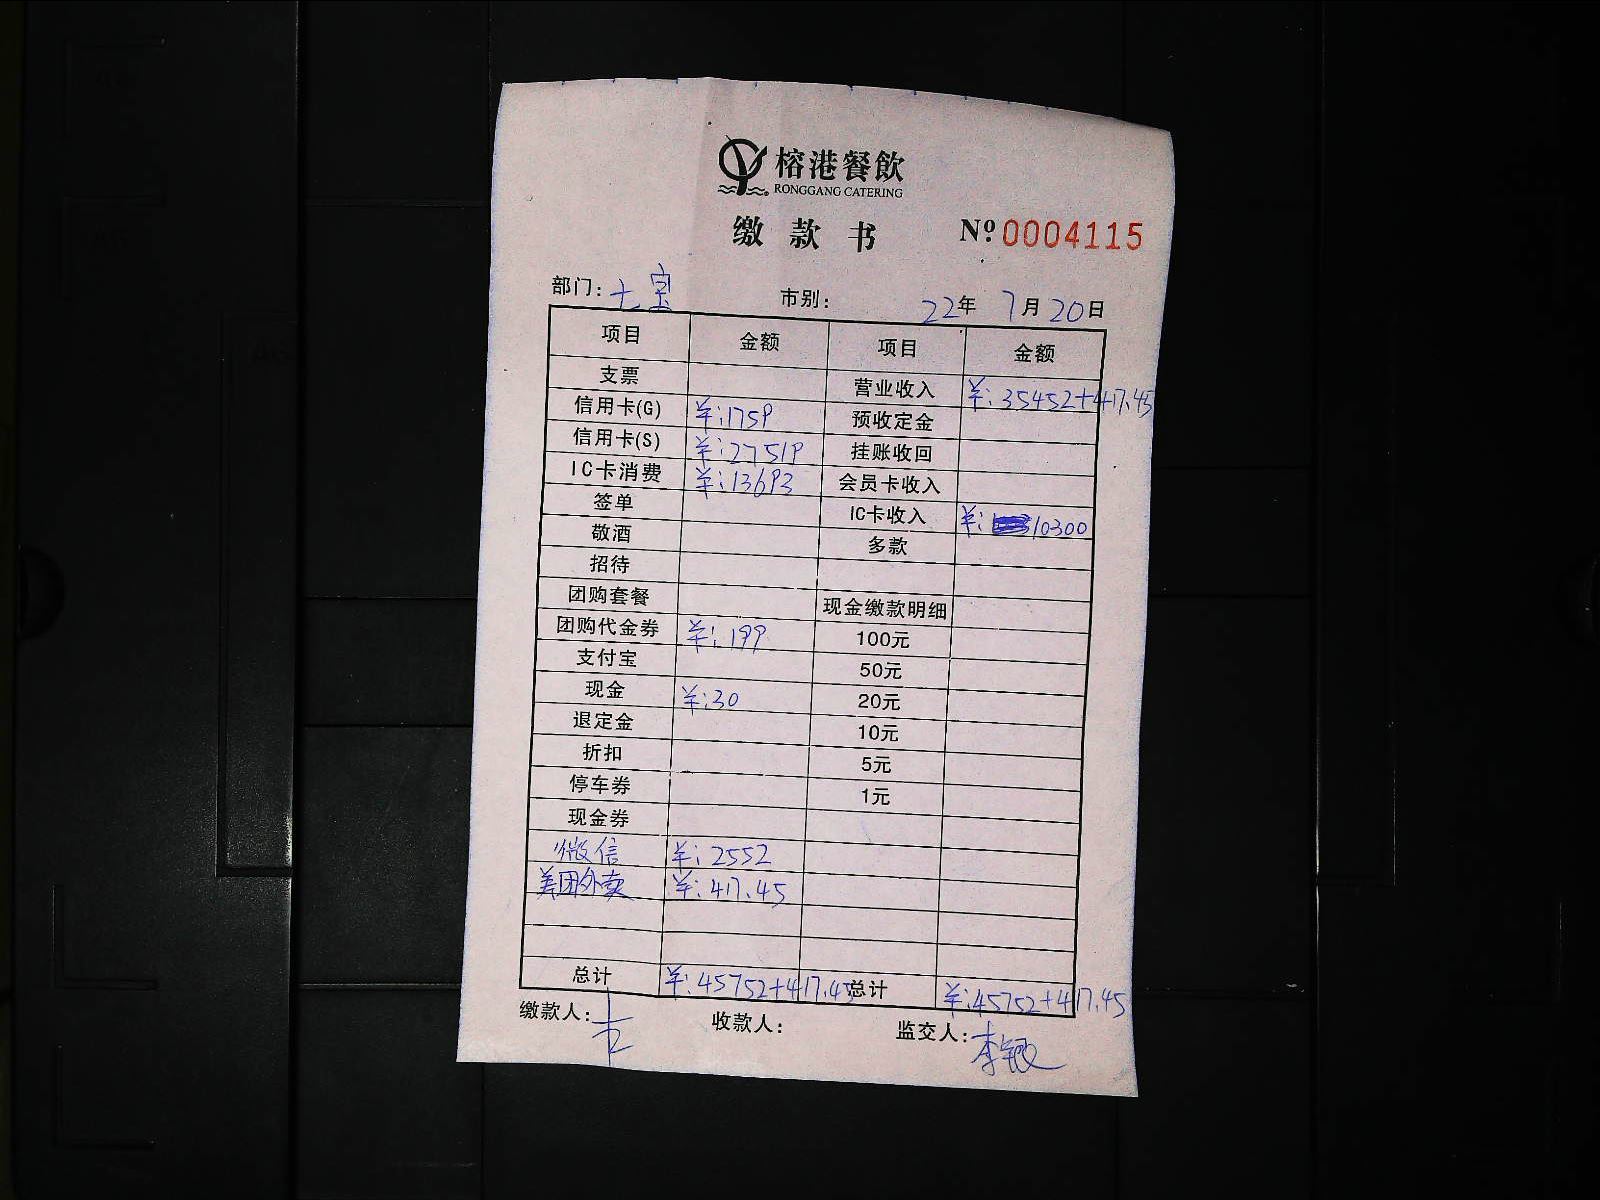 榕港餐飲
RONGGANG CATERING
缴款书 Nº 0004115
部门: 七宝 市别: 22年 7月 20日
项目 金额 项目 金额
支票 营业收入 ¥:35452+417.45
信用卡(G) ¥:1759 预收定金
信用卡(S) ¥:27519 挂账收回
IC卡消费 ¥:13693 会员卡收入
签单 IC卡收入 ¥: 10300
敬酒 多款
招待
团购套餐 现金缴款明细
团购代金券 ¥:199 100元
支付宝 50元
现金 ¥:30 20元
退定金 10元
折扣 5元
停车券 1元
现金券
微信 ¥:2552
美团外卖 ¥:417.45
总计 ¥:45752+417.45 总计 ¥:45752+417.45
缴款人: 收款人: 监交人: